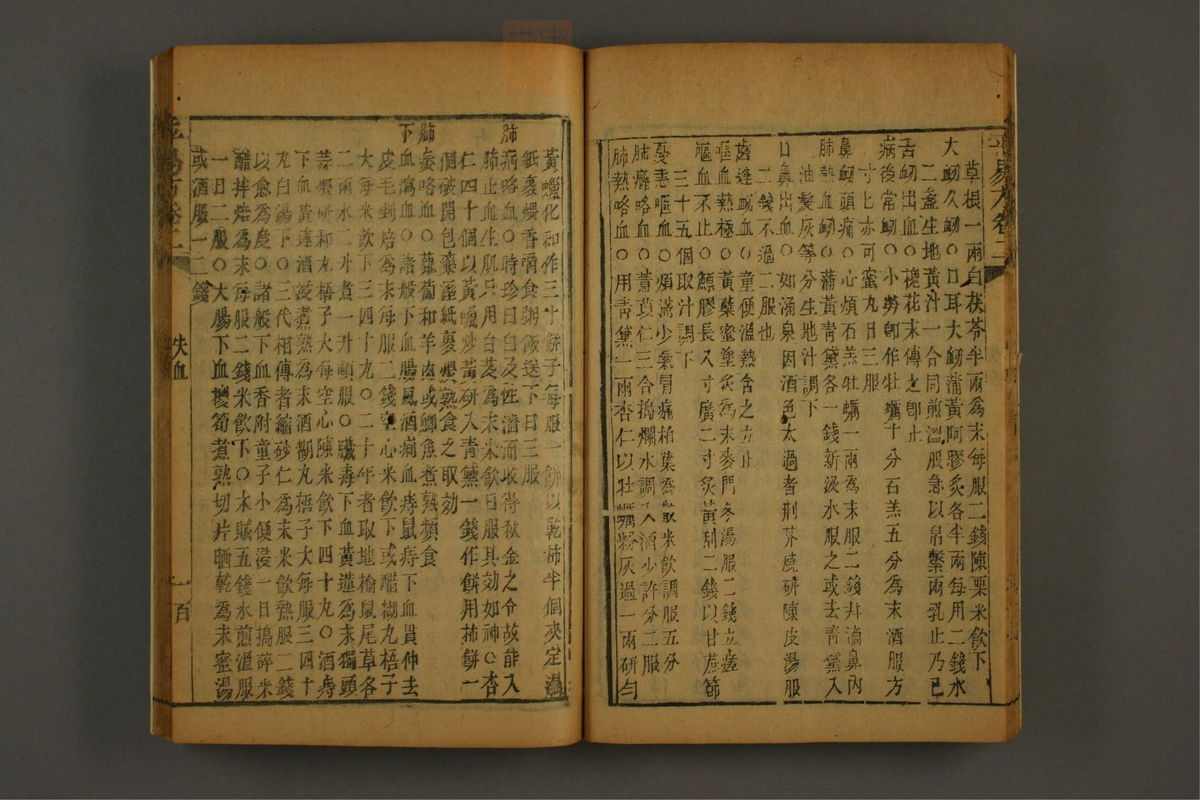 草根一兩白茯苓半兩為末每服二錢陳粟米飲下
大衂久衂○口耳大衂蒲黃阿膠炙各半兩每用二錢水
二盞生地黃汁一合同煎溫服急以帛繫兩乳止乃已
舌衂出血○槐花末傅之卽止
病後常衂○小勞卽作牡蠣十分石羔五分為末酒服方
寸匕亦可蜜丸日三服
鼻衂頭痛○心煩石羔牡蠣一兩為末服二錢幷滴鼻內
肺熱衂血○蒲黃青黛各一錢新汲水服之或去青黛入
油髮灰等分生地汁調下
口鼻出血○如涌泉因酒色太過者荆芥燒研陳皮湯服
二錢不過二服也
齒縫衂血○童便溫熱含之立止
嘔血熱極○黃蘗蜜塗炙為末麥門冬湯服二錢立瘥
嘔血不止○鰾膠長八寸廣二寸炙黃刮二錢以甘蔗節
三十五個取汁調下
憂恚嘔血○煩滿少氣胷痛柏葉為散米飲調服五分
肺痛咯血○薏苡仁三合搗爛水調入酒少許分二服
肺熱咯血○用青黛一兩杏仁以牡蠣粉灰過一兩研勻
黃蠟化和作三十餅子每服一餅以乾柿半個夾定濕
紙裹煨香嚼食粥飯送下日三服
肺病咯血○時珍曰白及性濇而收得秋金之令故能入
肺止血生肌只用白芨為末米飲日服具効如神○杏
仁四十個以黃蠟炒黃研入青黛一錢作餅用柿餅一
個破開包藥溼紙裹煨熟食之取効
肺痿咯血○蘿蔔和羊肉或鯽魚煮熟頻食
下血瀉血○諸般下血腸風酒痢血痔鼠痔下血貫仲去
皮毛剉焙為末每服二錢空心米飲下或醋糊丸梧子
大每米飲下三四十丸○二十年者取地榆鼠尾草各
二兩水二升煮一升頓服○臟毒下血黃連為末獨頭
蒜煨研和丸梧子大每空心陳米飲下四十九○酒痔
下血黃蓮酒浸煮熟為末酒糊丸梧子大每服三四十
丸白湯下○三代相傳者縮砂仁為末米飲熟服二錢
以愈為度○諸般下血香附童子小便浸一日搗碎米
醋拌焙為末每服二錢米飲下○木賊五錢水煎溫服
一日二服○大腸下血櫻筍煮熟切片晒乾為末蜜湯
或酒服一二錢
失血
一百